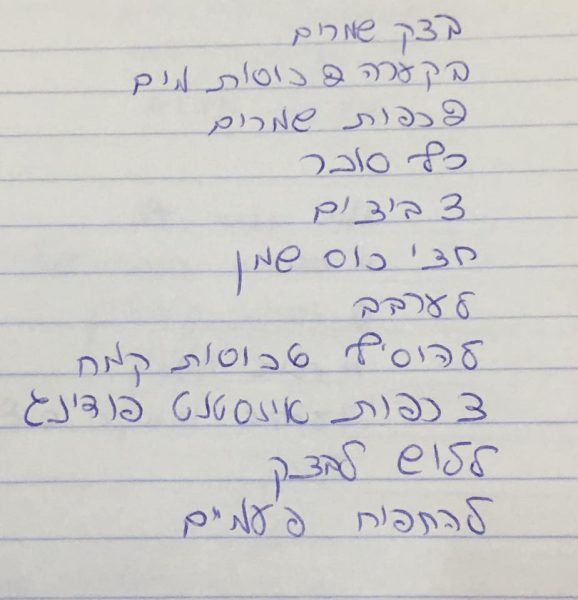 בצק שמרים
בקערה 2 כוסות מים
2 כפות שמרים
כף סוכר
3 ביצים
חצי כוס שמן
לערבב
להוסיף 6 כוסות קמח
3 כפות אינסטנט פודינג
ללוש לבצק
להתפוח פעמיים